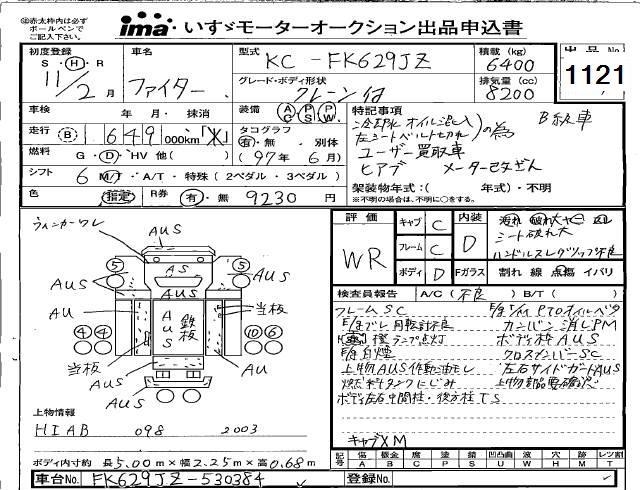 ※赤太枠内は必ず
ボールペンで
ご記入下さい。
ima いすゞモーターオークション出品申込書
初度登録
S・H・R
11/2月
車名
ファイター
型式
KC-FK629JZ
グレード・ボディ形状
クレーン付
積載 (kg)
6400
排気量 (cc)
8200
出品No
1121
車検 年・月・抹消
走行 B 649 000km
燃料 G・D・HV 他( )
シフト 6 M/T・A/T・特殊(2ペダル・3ペダル)
色 指定
R券 有・無 9230 円
装備 AC PS PW
タコグラフ
有・無・別体
(97年 6月)
特記事項
冷却水オイル混入
左シートベルト切れ
の為
B級車
ユーザー買取車
ヒアブ メーター改ざん
架装物年式:( 年式)・不明
※不明の場合は、不明に○をする。
評価
WR
キャブ C
フレーム C
ボディ D
内装 D
Fガラス
シート破れ大
割れ 線 点傷 イバリ
検査員報告 A/C(不良) B/T( )
フレームSC
E/g白煙
上物AUS作動油モレ
燃料タンクにじみ
ボデ左右中間柱・後方柱TS
キャブXM
ボデ枠AUS
クロスメンバーSC
左右サイドガードAUS
上物部品要確認
ウィンカーワレ
AUS
⑤
⑤
AS
AUS
AUS
AUS
AU
当板
AUS
鉄板
④④
⑩⑥
当板
AUS
AU
AUS
上物情報
HIAB 098 2003
ボディ内寸約 長5.00m×幅2.25m×高0.68m
車台No. FK629JZ-530384
登録No.
記号 傷A 板金B 腐C 塗P 錆S 凹凸曲U 波W 穴H 欠M 時T レツ割